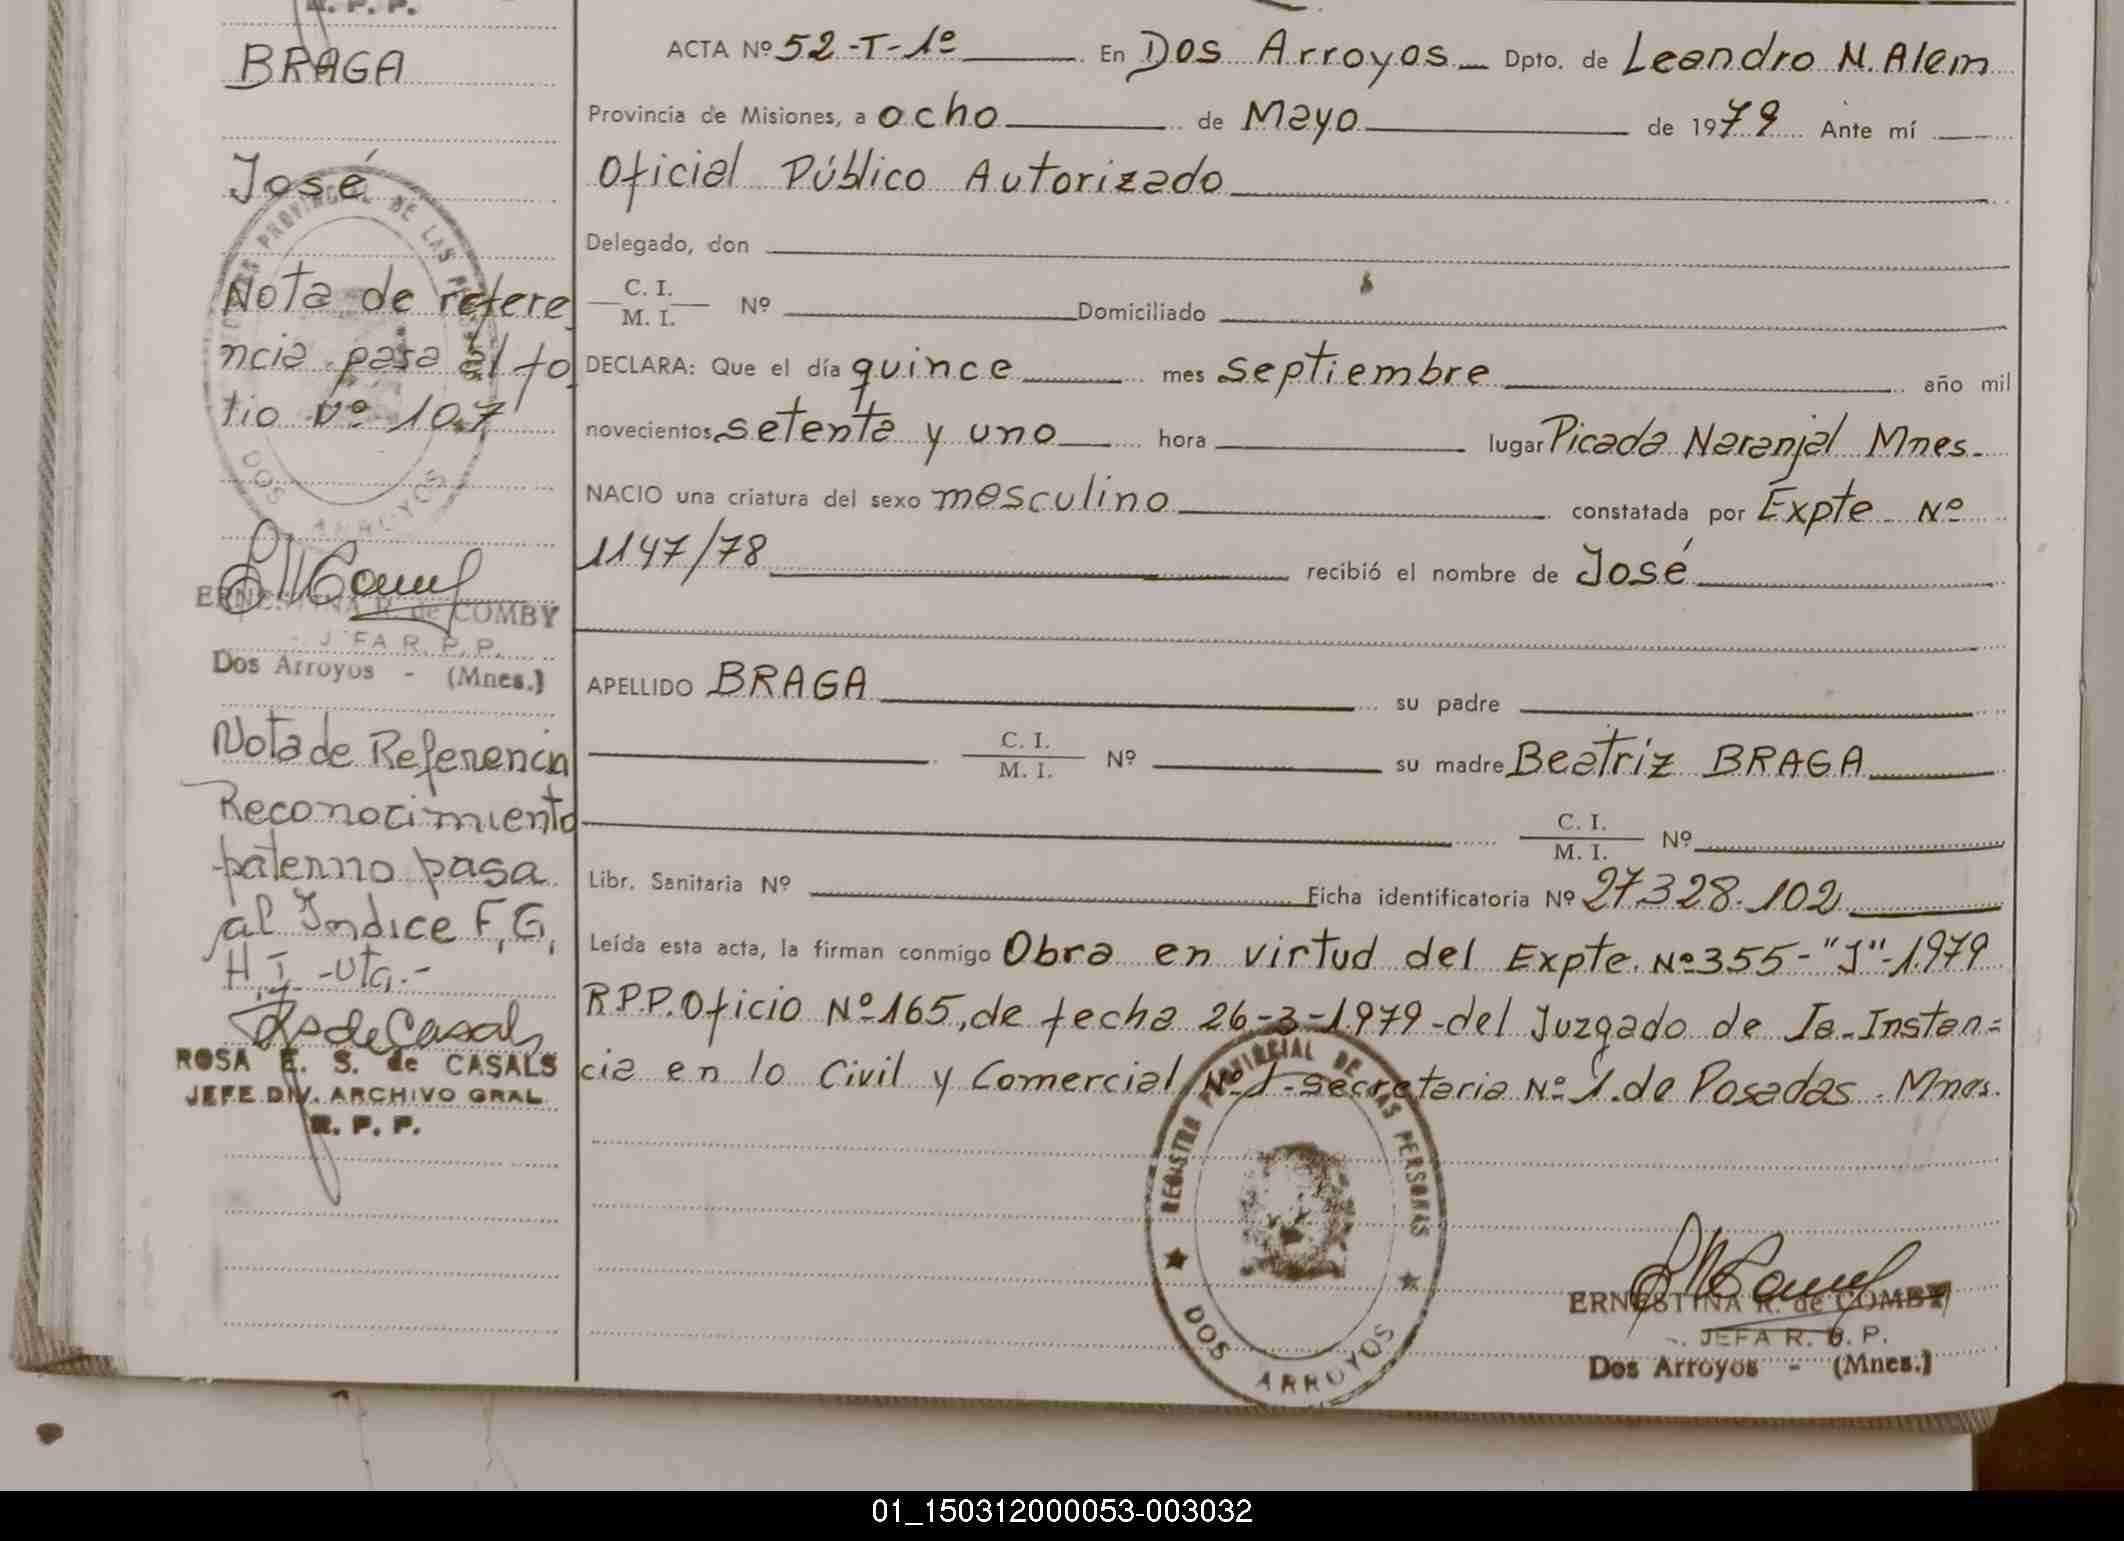 R. P. P.
BRAGA
José
Nota de refere
ncia pasa al fo
lio Nº 107
DOS ARROYOS
ERNESTINA R. de COMBY
JEFA R. P. P.
Dos Arroyos - (Mnes.)
Nota de Referencia
Reconocimiento
paterno pasa
al Indice F, G,
H, I, -Uta.-
RSdeCasals
ROSA E. S. de CASALS
JEFE DIV. ARCHIVO GRAL.
R. P. P.
ACTA Nº 52-T-1º En Dos Arroyos Dpto. de Leandro N. Alem
Provincia de Misiones, a ocho de Mayo de 1979 Ante mí
Oficial Público Autorizado
Delegado, don
C. I. / M. I. Nº Domiciliado
DECLARA: Que el día quince mes septiembre año mil
novecientos setenta y uno hora lugar Picada Naranjal Mnes.
NACIO una criatura del sexo masculino constatada por Expte Nº
1147/78 recibió el nombre de José
APELLIDO BRAGA su padre
C. I. / M. I. Nº su madre Beatriz BRAGA
C. I. / M. I. Nº
Libr. Sanitaria Nº Ficha identificatoria Nº 27328.102
Leída esta acta, la firman conmigo Obra en virtud del Expte. Nº 355-"J"-1979
R.P.P. Oficio Nº 165, de fecha 26-3-1979-del Juzgado de Ia-Instan=
cia en lo Civil y Comercial Nº 1-secretaria Nº 1. de Posadas. Mnes.
REGISTRO PROVINCIAL DE LAS PERSONAS
DOS ARROYOS
ERNESTINA R. de COMBY
JEFA R. P. P.
Dos Arroyos - (Mnes.)
01_150312000053-003032